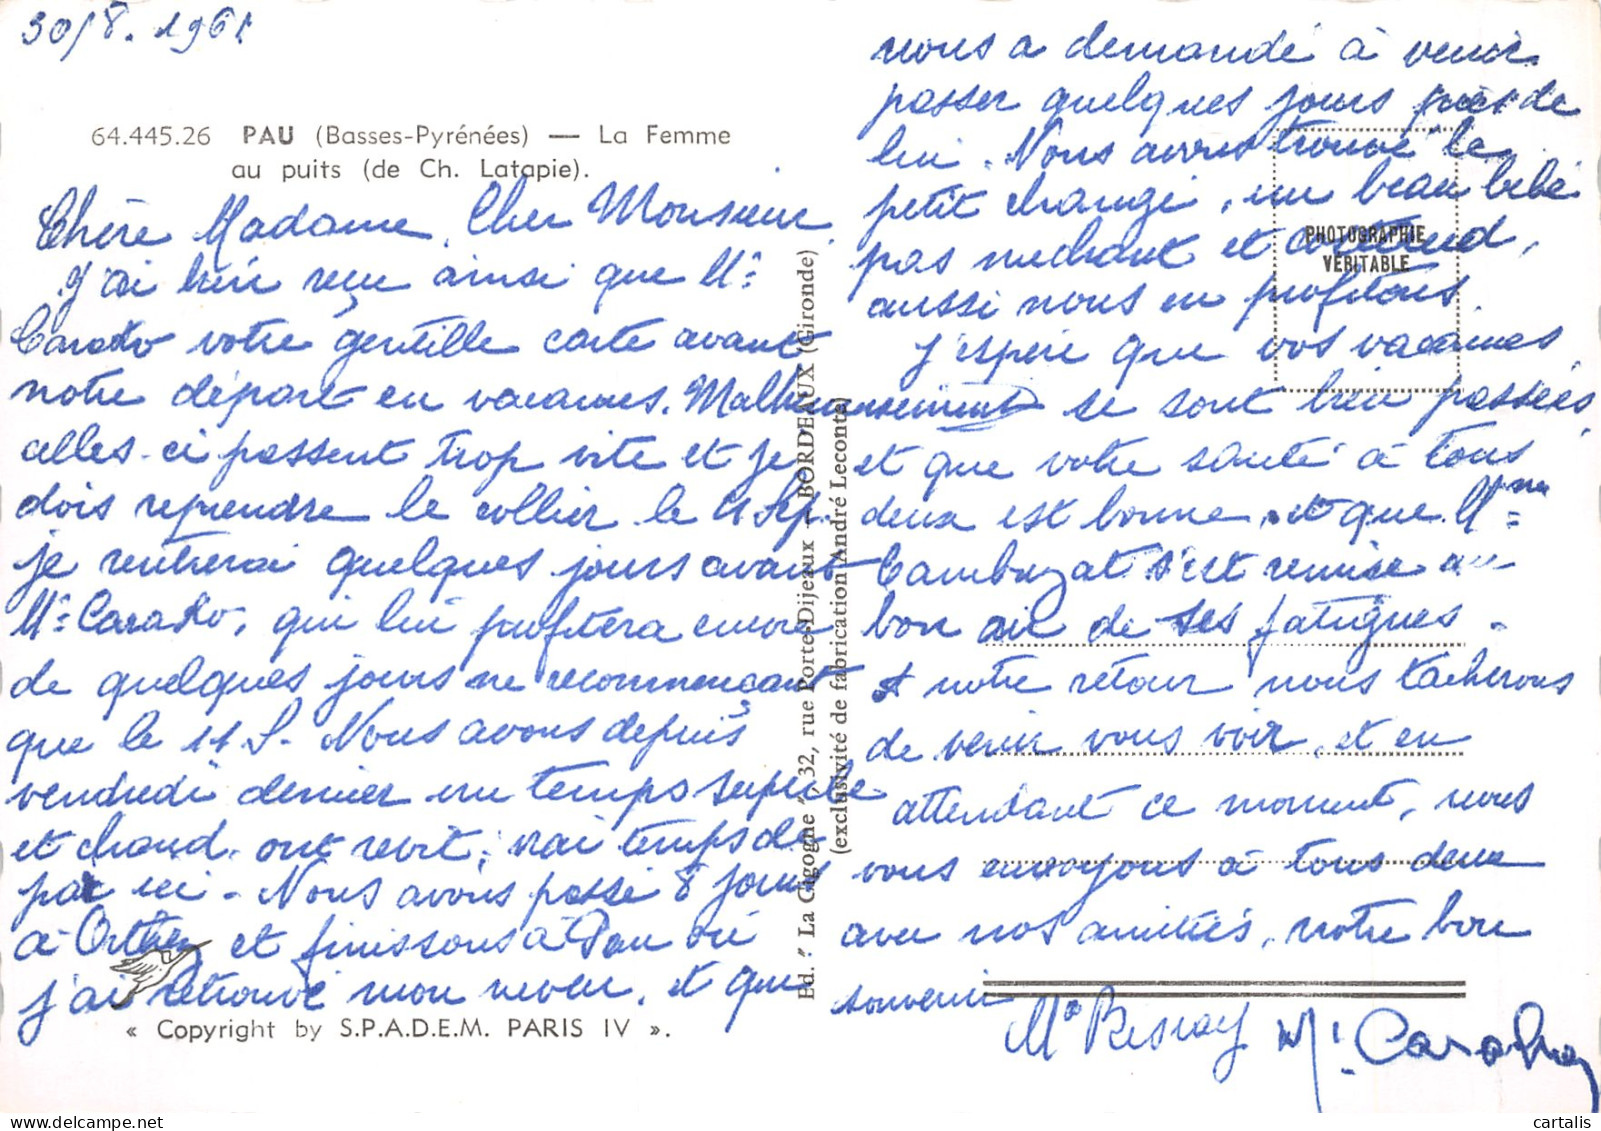 30/8. 1961
64.445.26 PAU (Basses-Pyrénées) — La Femme
au puits (de Ch. Latapie).
Chère Madame, Cher Monsieur,
J'ai bien reçu ainsi que Mr
votre gentille carte avant
notre départ en vacances. Malheureusement
celles-ci passent trop vite et je
dois reprendre le collier le 4 Sep.
je rentrerai quelques jours avant
Mr qui lui profitera encore
de quelques jours ne recommençant
que le 11 S. Nous avons depuis
vendredi dernier un temps superbe
et chaud, vrai temps de
par ici - Nous avons passé 8 jours
à Orthez et finissons à Pau où
j'ai retrouvé mon neveu, et qui
« Copyright by S.P.A.D.E.M. PARIS IV ».
Ed. " La Cigogne ", 32, rue Porte-Dijeaux - BORDEAUX (Gironde)
(exclusivité de fabrication André Leconte)
nous a demandé à venir
passer quelques jours près de
lui. Nous avons trouvé le
petit changé, un beau bébé
pas méchant et
aussi nous en profitons.
PHOTOGRAPHIE
VÉRITABLE
j'espère que vos vacances
se sont bien passées
et que votre santé à tous
deux est bonne, et que Mme
Cambuzat s'est remise au
bon air de ses fatigues.
A notre retour nous tacherons
de venir vous voir, et en
attendant ce moment, nous
vous envoyons à tous deux
avec nos amitiés, notre bon
souvenir